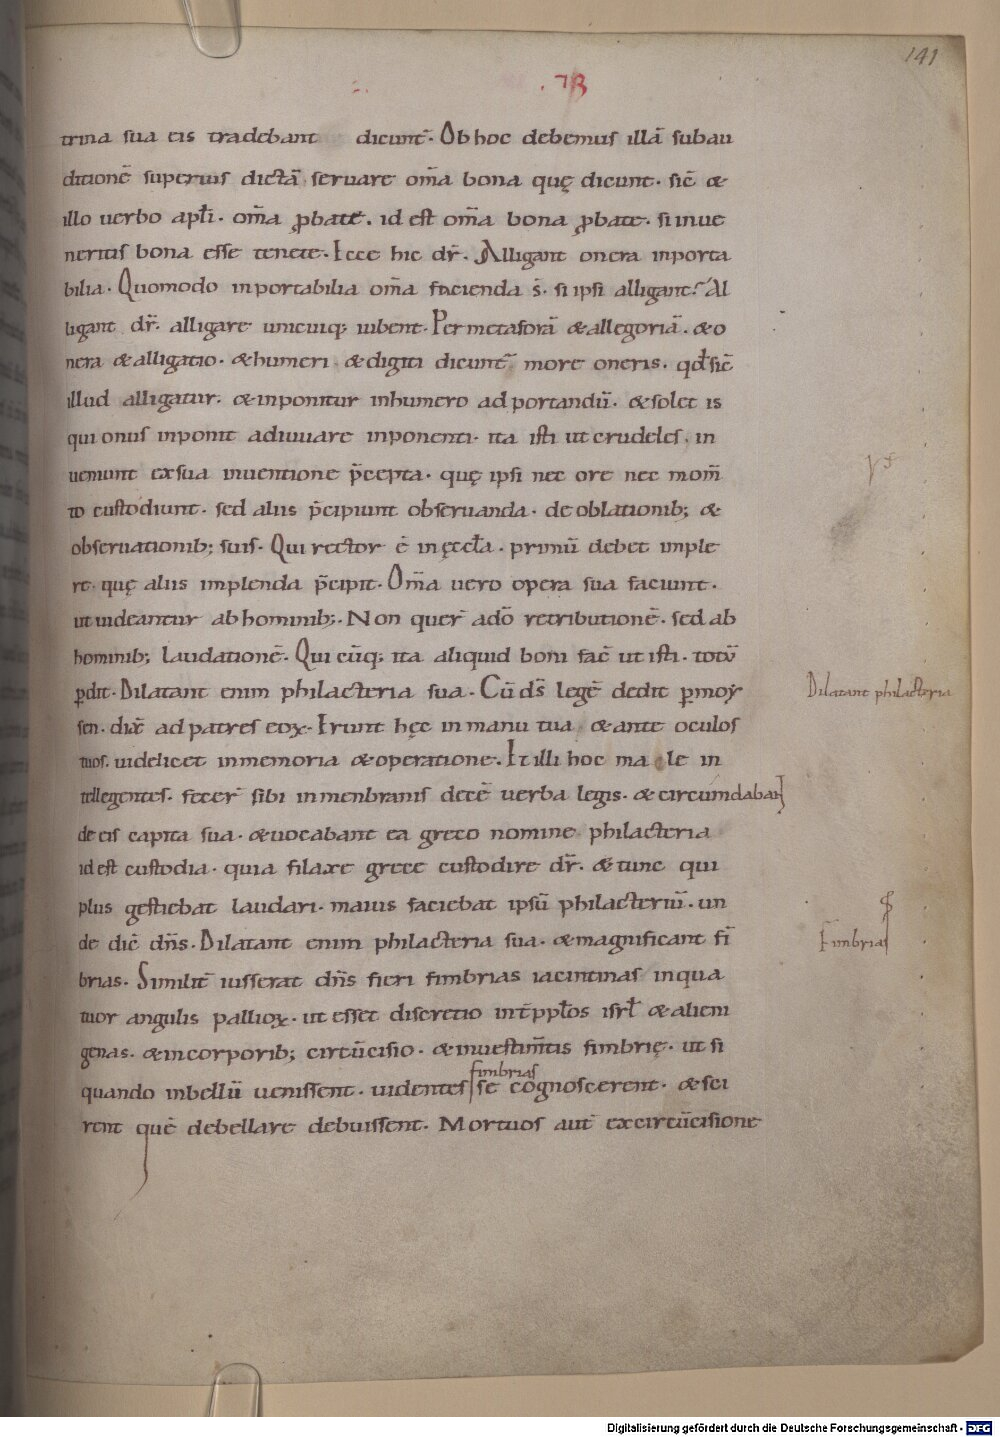 141
trina sua eis tradebant dicunt̄. Ob hoc debemus illā subau
ditionē superius dictā seruare om̄a bona quę dicunt. sic̄ &
illo uerbo apl̄i. om̄a ꝓbate. id est om̄a bona ꝓbate. si inue
neritis bona esse tenete. Ecce hic dr̄. Alligant onera inporta
bilia. Quomodo inportabilia om̄a facienda s̄. si ipsi alligant? Al
ligant dr̄. alligare unicuiq; iubent. Per metaforā & allegoriā. & o
nera & alligatio. & humeri & digiti dicunt̄ more oneris. qđ sic̄
illud alligatur. & inponitur in humero ad portandū. & solet is
qui onus inponit adiuuare inponenti. ita isti ut crudeles. in
ueniunt ex sua inuentione p̄cepta. quę ipsi nec ore nec mom̄
to custodiunt. sed aliis p̄cipiunt obseruanda. de oblationib; &
obseruationib; suis. Qui rector ē in ęccl̄a. primū debet imple
re. quę aliis implenda p̄cipit. Om̄a uero opera sua faciunt.
ut uideantur ab hominib;. Non quer̄ a dō retributionē. sed ab
hominib; laudationē. Qui cūq; ita aliquid boni fac̄ ut isti. totū
ꝑdit. Dilatant enim philacteria sua. Cū ds̄ legē dedit ꝑ moy
sen. dix̄ ad patres eoꝝ. Erunt hęc in manu tua & ante oculos
tuos. uidelicet in memoria & operatione. Et illi hoc male in
tellegentes. fecer̄ sibi in menbranis decē uerba legis. & circumdabant
de eis capita sua. & uocabant ea greco nomine philacteria
id est custodia. quia filaxe grece custodire dr̄. & tunc qui
plus gestiebat laudari. maius faciebat ipsū philacteriū. un
de dic̄ dn̄s. Dilatant enim philacteria sua. & magnificant fī
brias. Similit̄ iusserat dn̄s fieri fimbrias iacintinas in qua
tuor angulis pallioꝝ. ut esset discretio int̄ ppl̄os isrl̄ & alieni
genas. & in corporib; circūcisio. & in uestim̄tis fimbrię. ut si
fimbrias
quando in bellū uenissent. uidentes se cognoscerent. & sci
rent quē debellare debuissent. Mortuos aut̄ ex circūcisione
Dilatant philacteria
Fimbrias
Digitalisierung gefördert durch die Deutsche Forschungsgemeinschaft - DFG